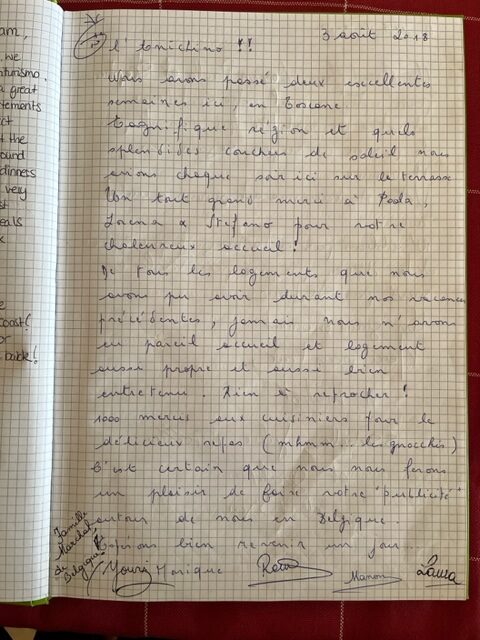 am,
we
nturismo.
a great
vements
ct
t the
ound
dinners
very
st
eals
x
e
coast!
or
back!
3 août 2018
l'Anichino !!
Nous avons passé deux excellentes
semaines ici, en Toscane.
Magnifique région et quels
splendides couchers de soleil nous
avons chaque soir ici sur la terrasse
Un tout grand merci à Paola,
Lorena & Stefano pour votre
chaleureux accueil !
De tous les logements que nous
avons pu avoir durant nos vacances
précédentes, jamais nous n'avons
eu pareil accueil et logement
aussi propre et aussi bien
entretenu. Rien à reprocher !
1000 mercis aux cuisiniers pour le
délicieux repas (mhmm... les gnocchis)
C'est certain que nous nous ferons
un plaisir de faire votre "publicité"
autour de nous en Belgique.
Espérons bien revenir un jour...
Famille
Marchal
de
Belgique
Youri Monique Manon Laura